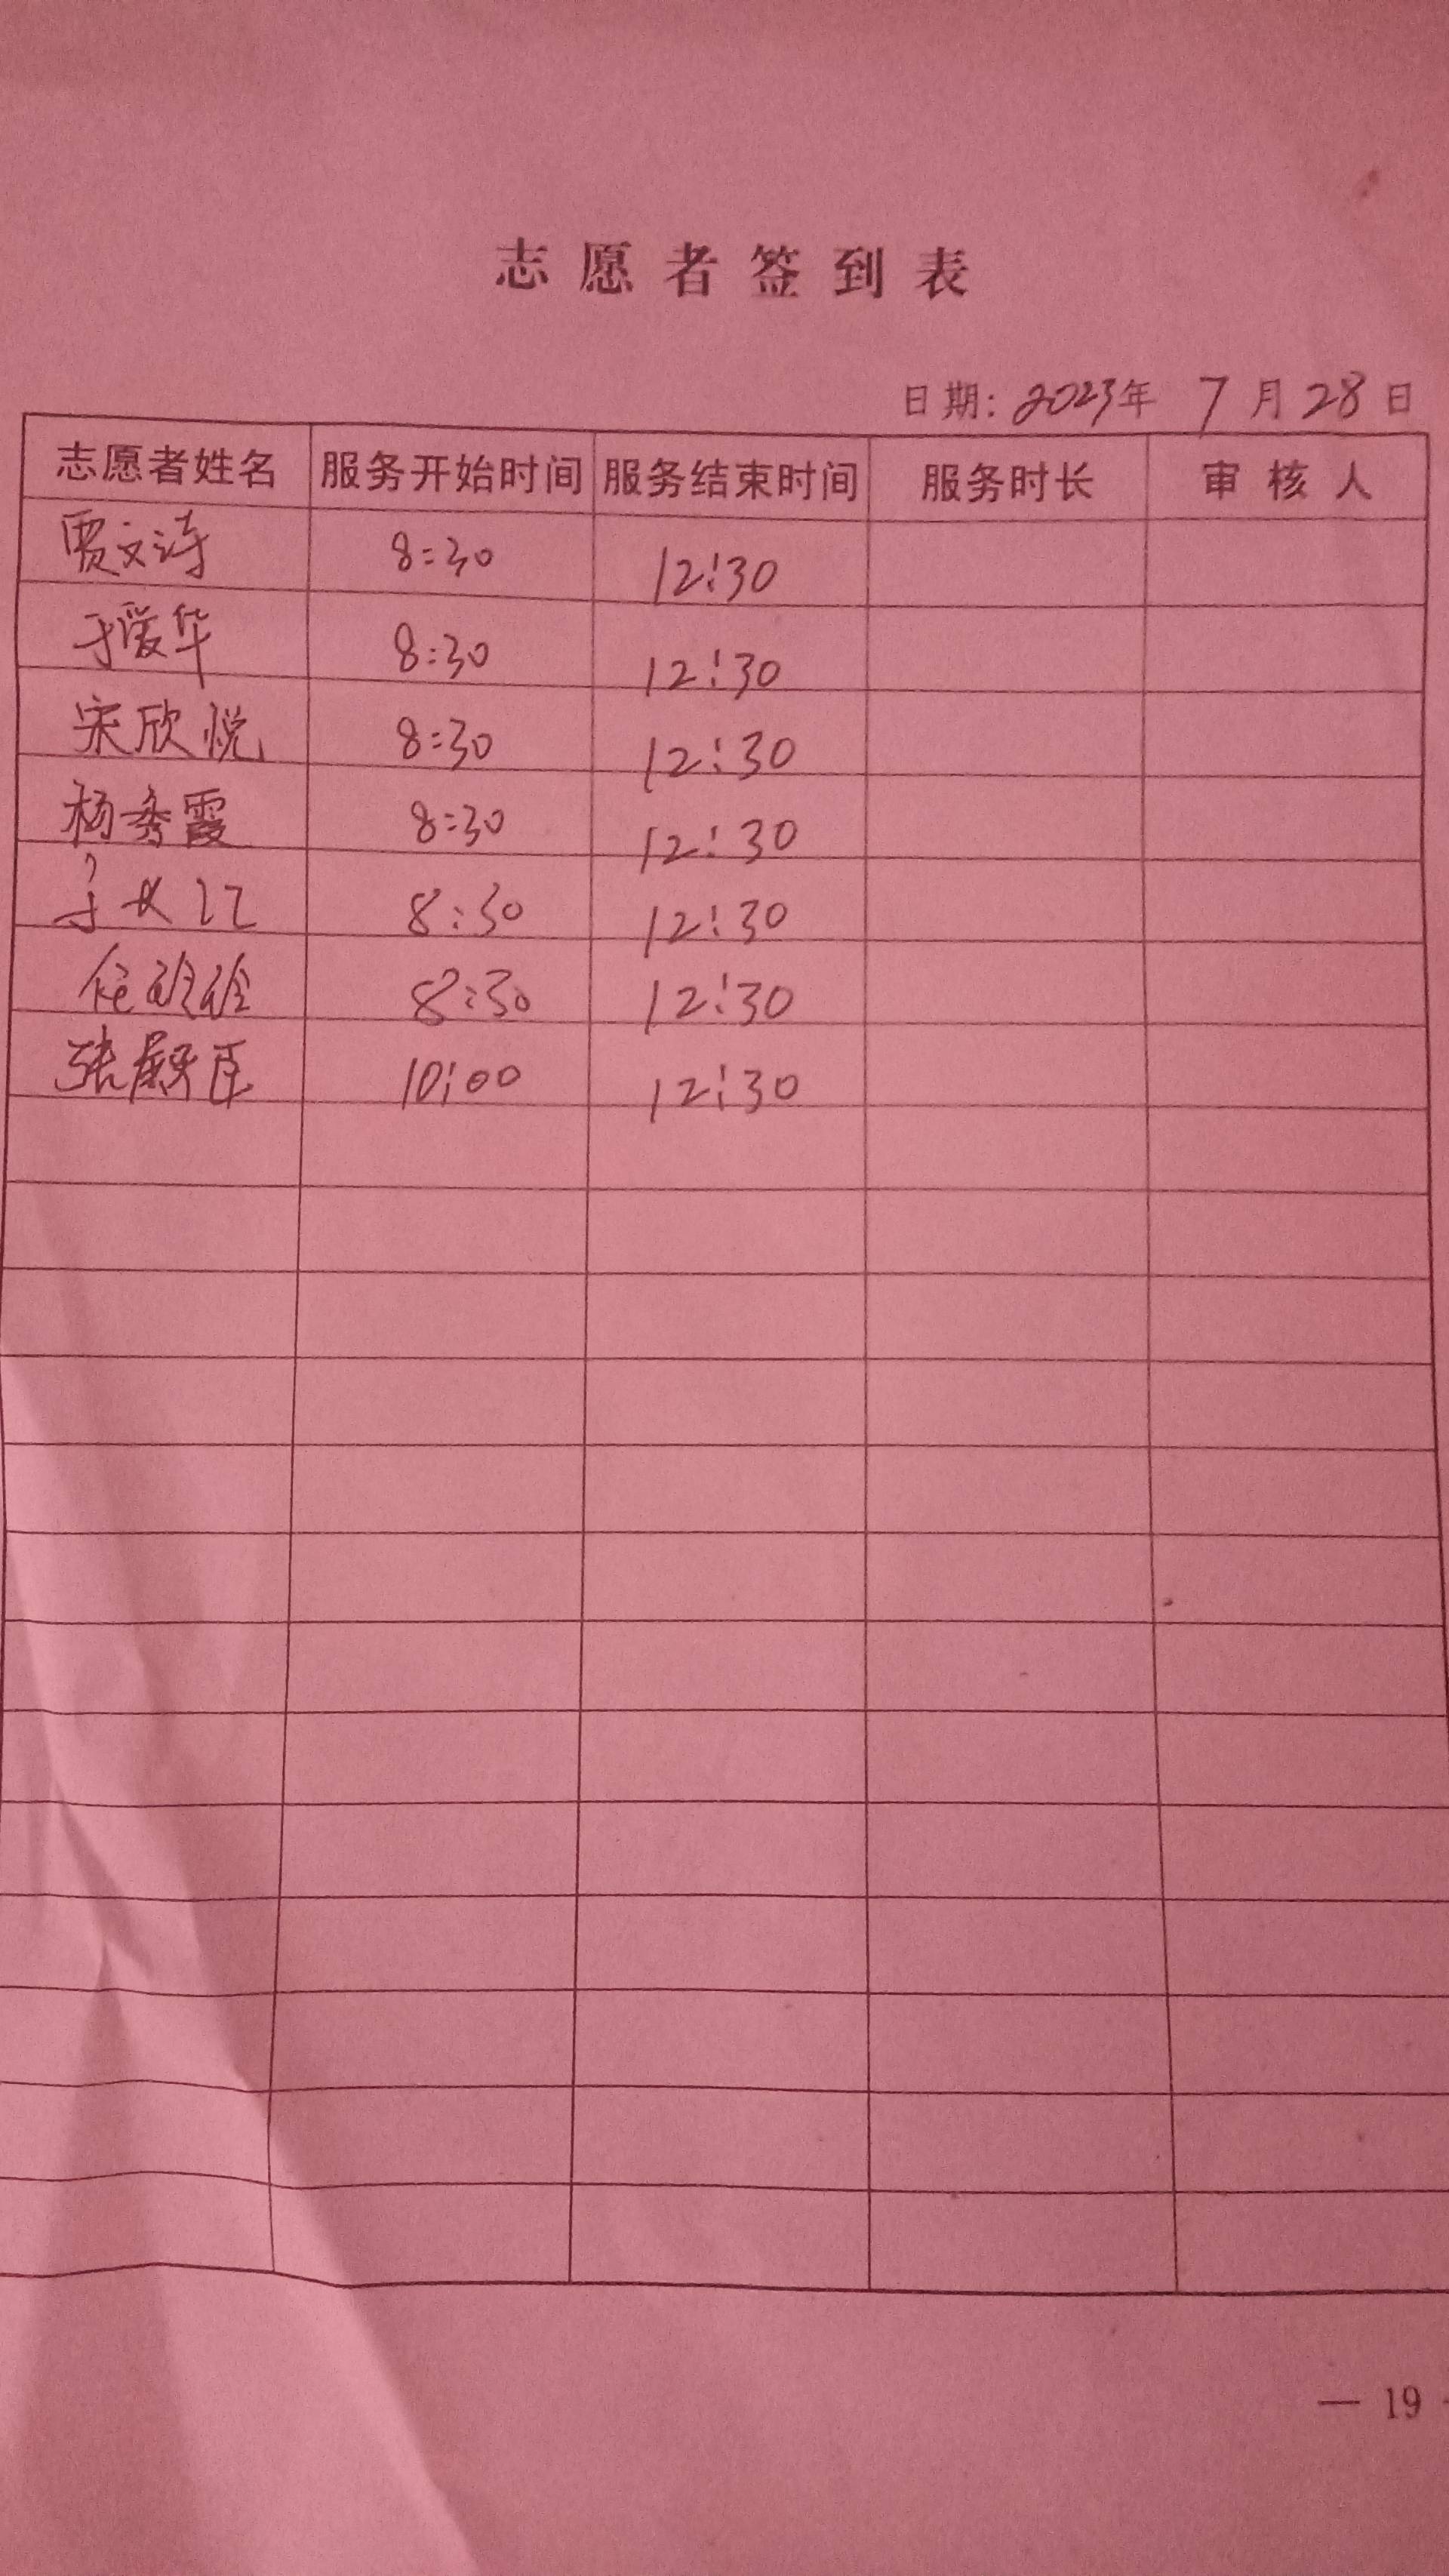 志愿者签到表
日期: 2023年 7月28日
志愿者姓名 服务开始时间 服务结束时间 服务时长 审核人
贾文涛 8:30 12:30
于爱华 8:30 12:30
宋欣悦 8:30 12:30
杨秀霞 8:30 12:30
8:30 12:30
8:30 12:30
张 臣 10:00 12:30
— 19